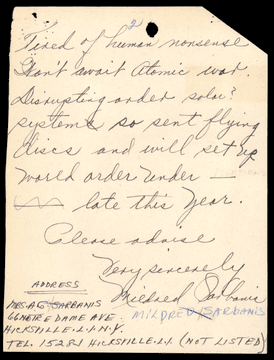 2
Tired of human nonsense
Don't await Atomic war.
Disrupting order solar?
systems so sent flying
discs and will set up
world order under —
late this year.
Please advise
Very sincerely
Mildred Sarbanis
MILDRED SARBANIS
ADDRESS
MRS. A G SARBANIS
66 NOTRE DAME AVE.
HICKSVILLE. L.I. N.Y.
TEL. 15281 HICKSVILLE. L.I. (NOT LISTED)